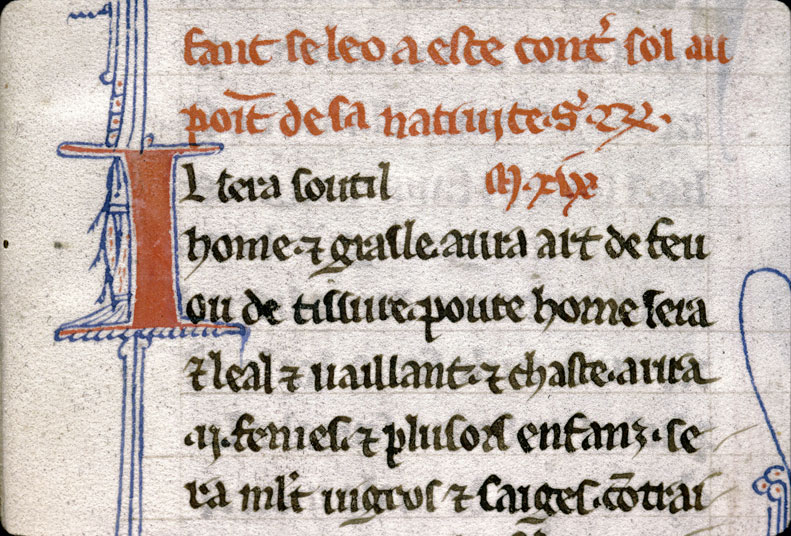 fant se leo a este cont̉ sol au
poīt de sa natiuite. S̉. xx.
IL sera soutil M. xix
home. ⁊ graſle. aura art de feu
ou de tiſſure. poure home sera
⁊ leal ⁊ uaillant. ⁊ chaſte. aura
.ij. femes. ⁊ pluſors enfanz. ſe
ra ml̉t uigros ⁊ ſaiges. cōtrai